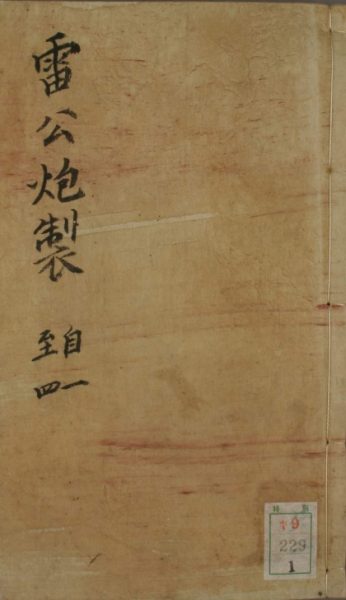 雷公炮製
自一
至四
9
229
1